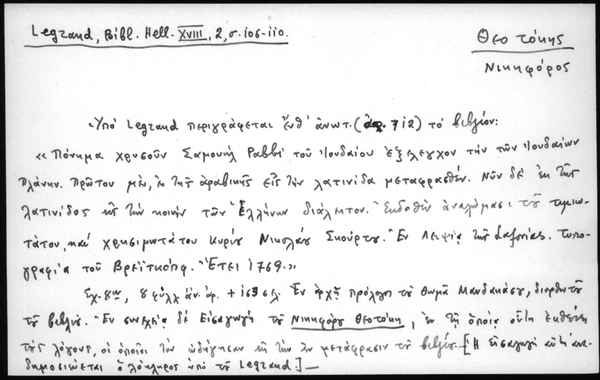 Legrand, Bibl. Hell. XVIII, 2, σ. 106-110.
Θεοτόκης
Νικηφόρος
Ὑπὸ Legrand περιγράφεται ἔνθ' ἀνωτ. (ἀρ. 712) τὸ βιβλίον:
« Πόνημα χρυσοῦν Σαμουὴλ Ραββὶ τοῦ Ἰουδαίου ἐξελέγχον τὴν τῶν Ἰουδαίων
πλάνην. Πρῶτον μὲν, ἐκ τῆς ἀραβικῆς εἰς τὴν λατινίδα μεταφρασθέν. Νῦν δὲ ἐκ τῆς
λατινίδος εἰς τὴν κοινὴν τῶν Ἑλλήνων διάλεκτον. Ἐκδοθὲν ἀναλώμασι τοῦ τιμιω-
τάτου καὶ χρησιμωτάτου Κυρίου Νικολάου Σκούρτου. Ἐν Λειψίᾳ τῆς Σαξονίας. Τυπο-
γραφίᾳ τοῦ Βρεϊτκόπφ. Ἔτει 1769.»
Σχ. 8ον, 8 φύλλ. ἀν. ἀρ. + 163 σελ. Ἐν ἀρχῇ πρόλογος τοῦ Θωμᾶ Μανδακάσου, διορθωτοῦ
τοῦ βιβλίου. Ἐν συνεχείᾳ δὲ Εἰσαγωγὴ τοῦ Νικηφόρου Θεοτόκη, ἐν τῇ ὁποίᾳ οὗτος ἐκθέτει
τοὺς λόγους, οἱ ὁποῖοι τὸν ὡδήγησαν εἰς τὴν μετάφρασιν τοῦ βιβλίου. [Ἡ εἰσαγωγὴ αὕτη ἀνα-
δημοσιεύεται ὁλόκληρος ὑπὸ τοῦ Legrand.]—